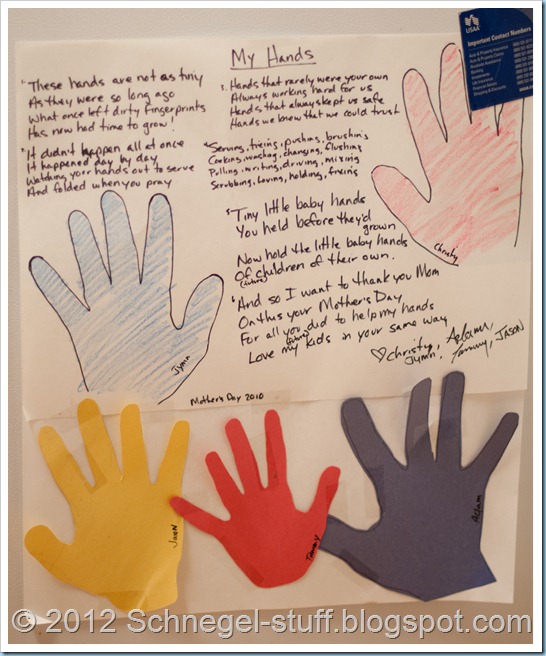 My Hands
1. These hands are not as tiny
As they were so long ago
What once left dirty fingerprints
Has now had time to grow!
2. It didn't happen all at once
It happened day by day
Watching your hands out to serve
And folded when you pray
3. Hands that rarely were your own
Always working hard for us
Hands that always kept us safe
Hands we knew that we could trust
4. Serving, tieing, pushing, brushin's
Cooking, washing, changing, flushing
Pulling, writing, driving, mixing
Scrubbing, loving, holding, fixing
5. Tiny little baby hands
You held before they'd grown
Now hold the little baby hands
Of (future) children of their own.
6. And so I want to thank you Mom
On this your Mother's Day
For all you did to help my hands
Love my (future) kids in your same way
♡ Christy, Adam,
Jymn, Tammy, JASON
Christy
Jymn
Mother's Day 2010
JasoN
Tammy
Adam
USAA
Important Contact Numbers
Auto & Property Insurance
Auto & Property Claims
Roadside Assistance
Banking
Investments
Life Insurance
Financial Advice
Shopping & Discounts
© 2012 Schnegel-stuff.blogspot.com